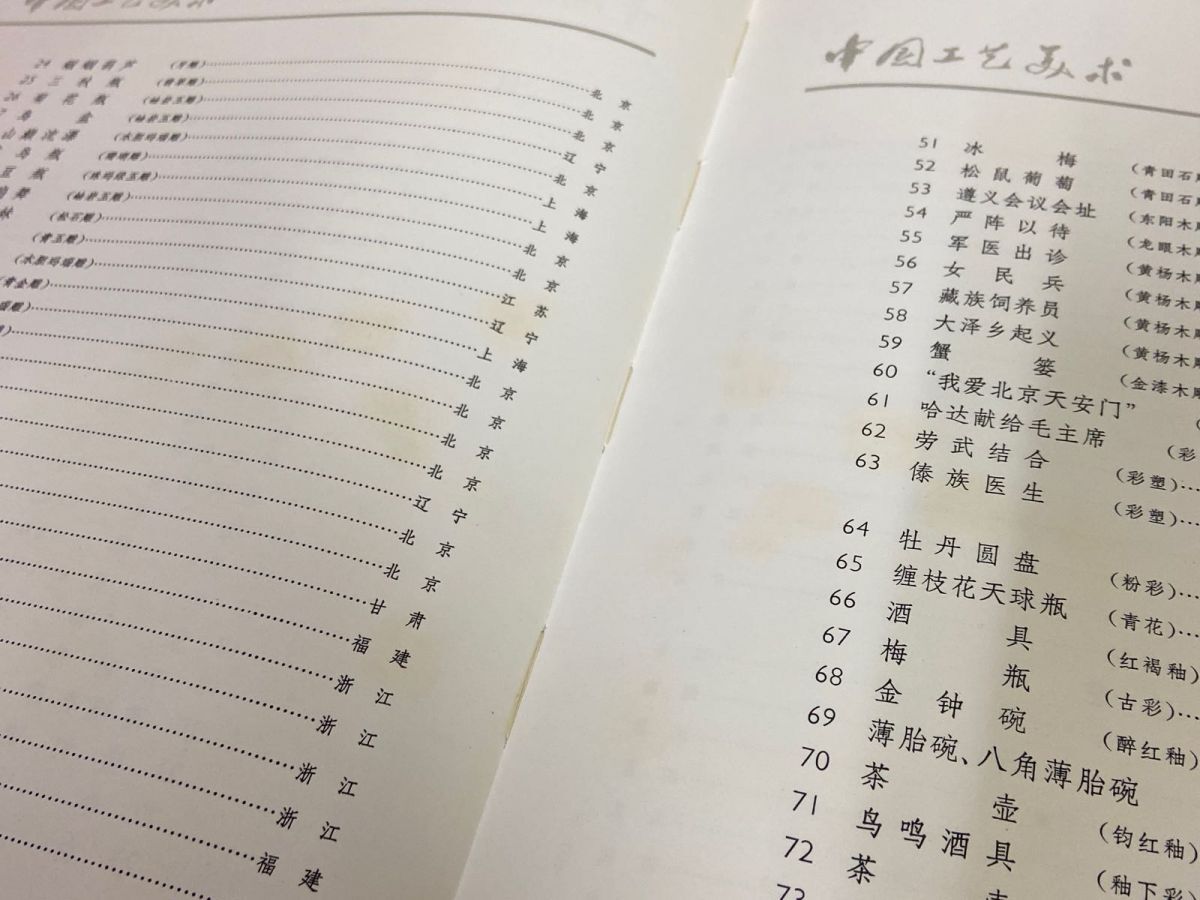 中国工艺美术
24 蝈蝈葫芦 (牙雕) 北京
25 三秋瓶 (翡翠雕) 北京
26 菊花瓶 (岫岩玉雕) 北京
鸟盒 (岫岩玉雕) 辽宁
山巅流瀑 (水胆玛瑙雕) 北京
鸟瓶 (珊瑚雕) 上海
豆瓶 上海
舞 (岫岩玉雕) 北京
(松石雕) 北京
(青玉雕) 江苏
(水胆玛瑙雕) 辽宁
青金雕) 上海
雕) 北京
北京
北京
北京
辽宁
北京
北京
甘肃
福建
浙江
浙江
浙江
浙江
福建
中国工艺美术
51 冰梅 (青田石雕
52 松鼠葡萄 (青田石雕
53 遵义会议会址 (东阳木雕
54 严阵以待 (龙眼木雕
55 军医出诊 (黄杨木雕
56 女民兵 (黄杨木雕
57 藏族饲养员 (黄杨木雕
58 大泽乡起义 (黄杨木雕
59 蟹篓 (金漆木雕
60 “我爱北京天安门” (
61 哈达献给毛主席 (彩
62 劳武结合 (彩塑)
63 傣族医生 (彩塑)
64 牡丹圆盘 (粉彩)
65 缠枝花天球瓶 (青花)
66 酒具 (红褐釉)
67 梅瓶 (古彩)
68 金钟碗 (醉红釉)
69 薄胎碗、八角薄胎碗
70 茶壶 (钧红釉)
71 鸟鸣酒具 (釉下彩)
72 茶壶
73